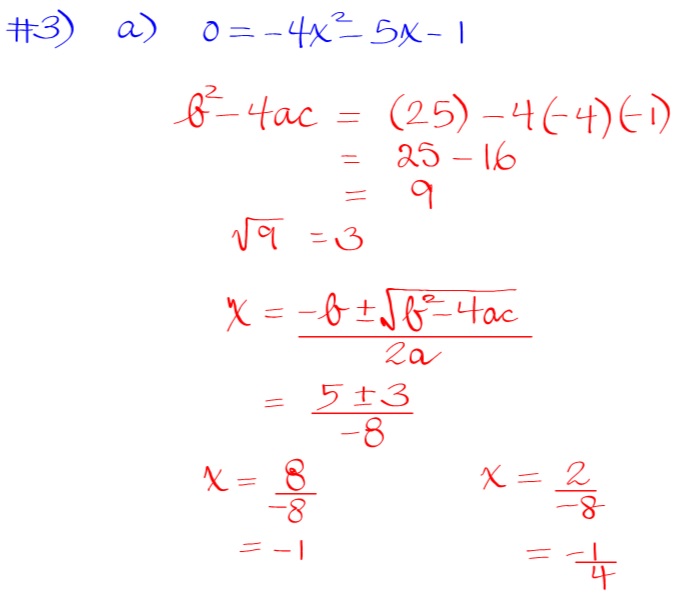 #3) a) 0 = -4x² - 5x - 1
b² - 4ac = (25) - 4(-4)(-1)
= 25 - 16
= 9
√9 = 3
x = -b ± √b² - 4ac
2a
= 5 ± 3
-8
x = 8 x = 2
-8 -8
= -1 = -1
4